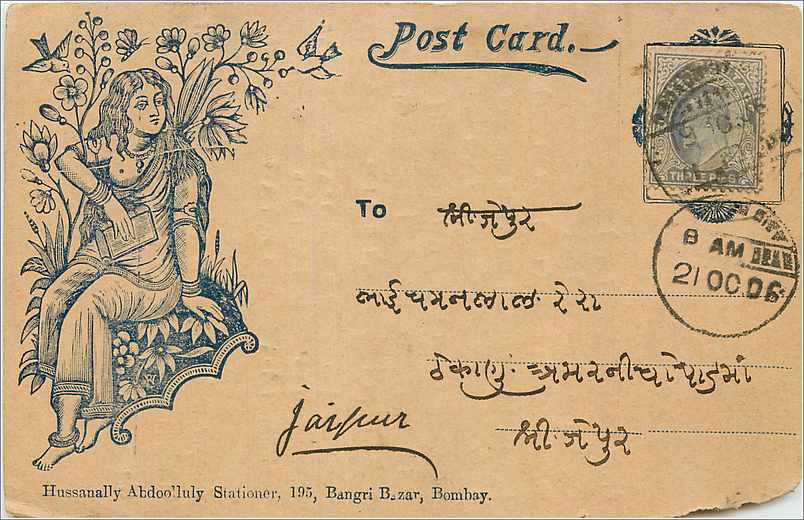 Post Card.
THREE PIES
8 AM
21 OC 06
To શ્રી જેપુર
ભાઈ ચમનલાલ
ઠેકાણું
શ્રી. જેપુર
jaipur
Hussanally Abdoo'luly Stationer, 195, Bangri Bazar, Bombay.